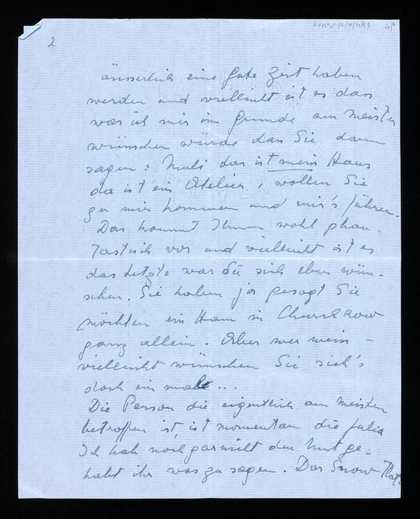 2
äusserlich eine gute Zeit haben
werden und vielleicht ist es das
was ich mir im Grunde am meisten
wünschen würde das Sie dann
sagen: Muli das ist mein Haus
da ist ein Atelier, wollen Sie
zu mir kommen und mir's führen.
Das kommt Ihnen wohl phan-
tastisch vor und vielleicht ist es
das Letzte was Sie sich eben wün-
schen. Sie haben ja gesagt Sie
möchten ein Haus in
ganz allein. Aber wer weis-
vielleicht wünschen Sie sich's
doch ein mal ...
Die Person die eigentlich am meisten
betroffen ist, ist momentan die Julia
Ich hab noch gar nicht den Mut ge-
habt ihr was zu sagen. Das Snow